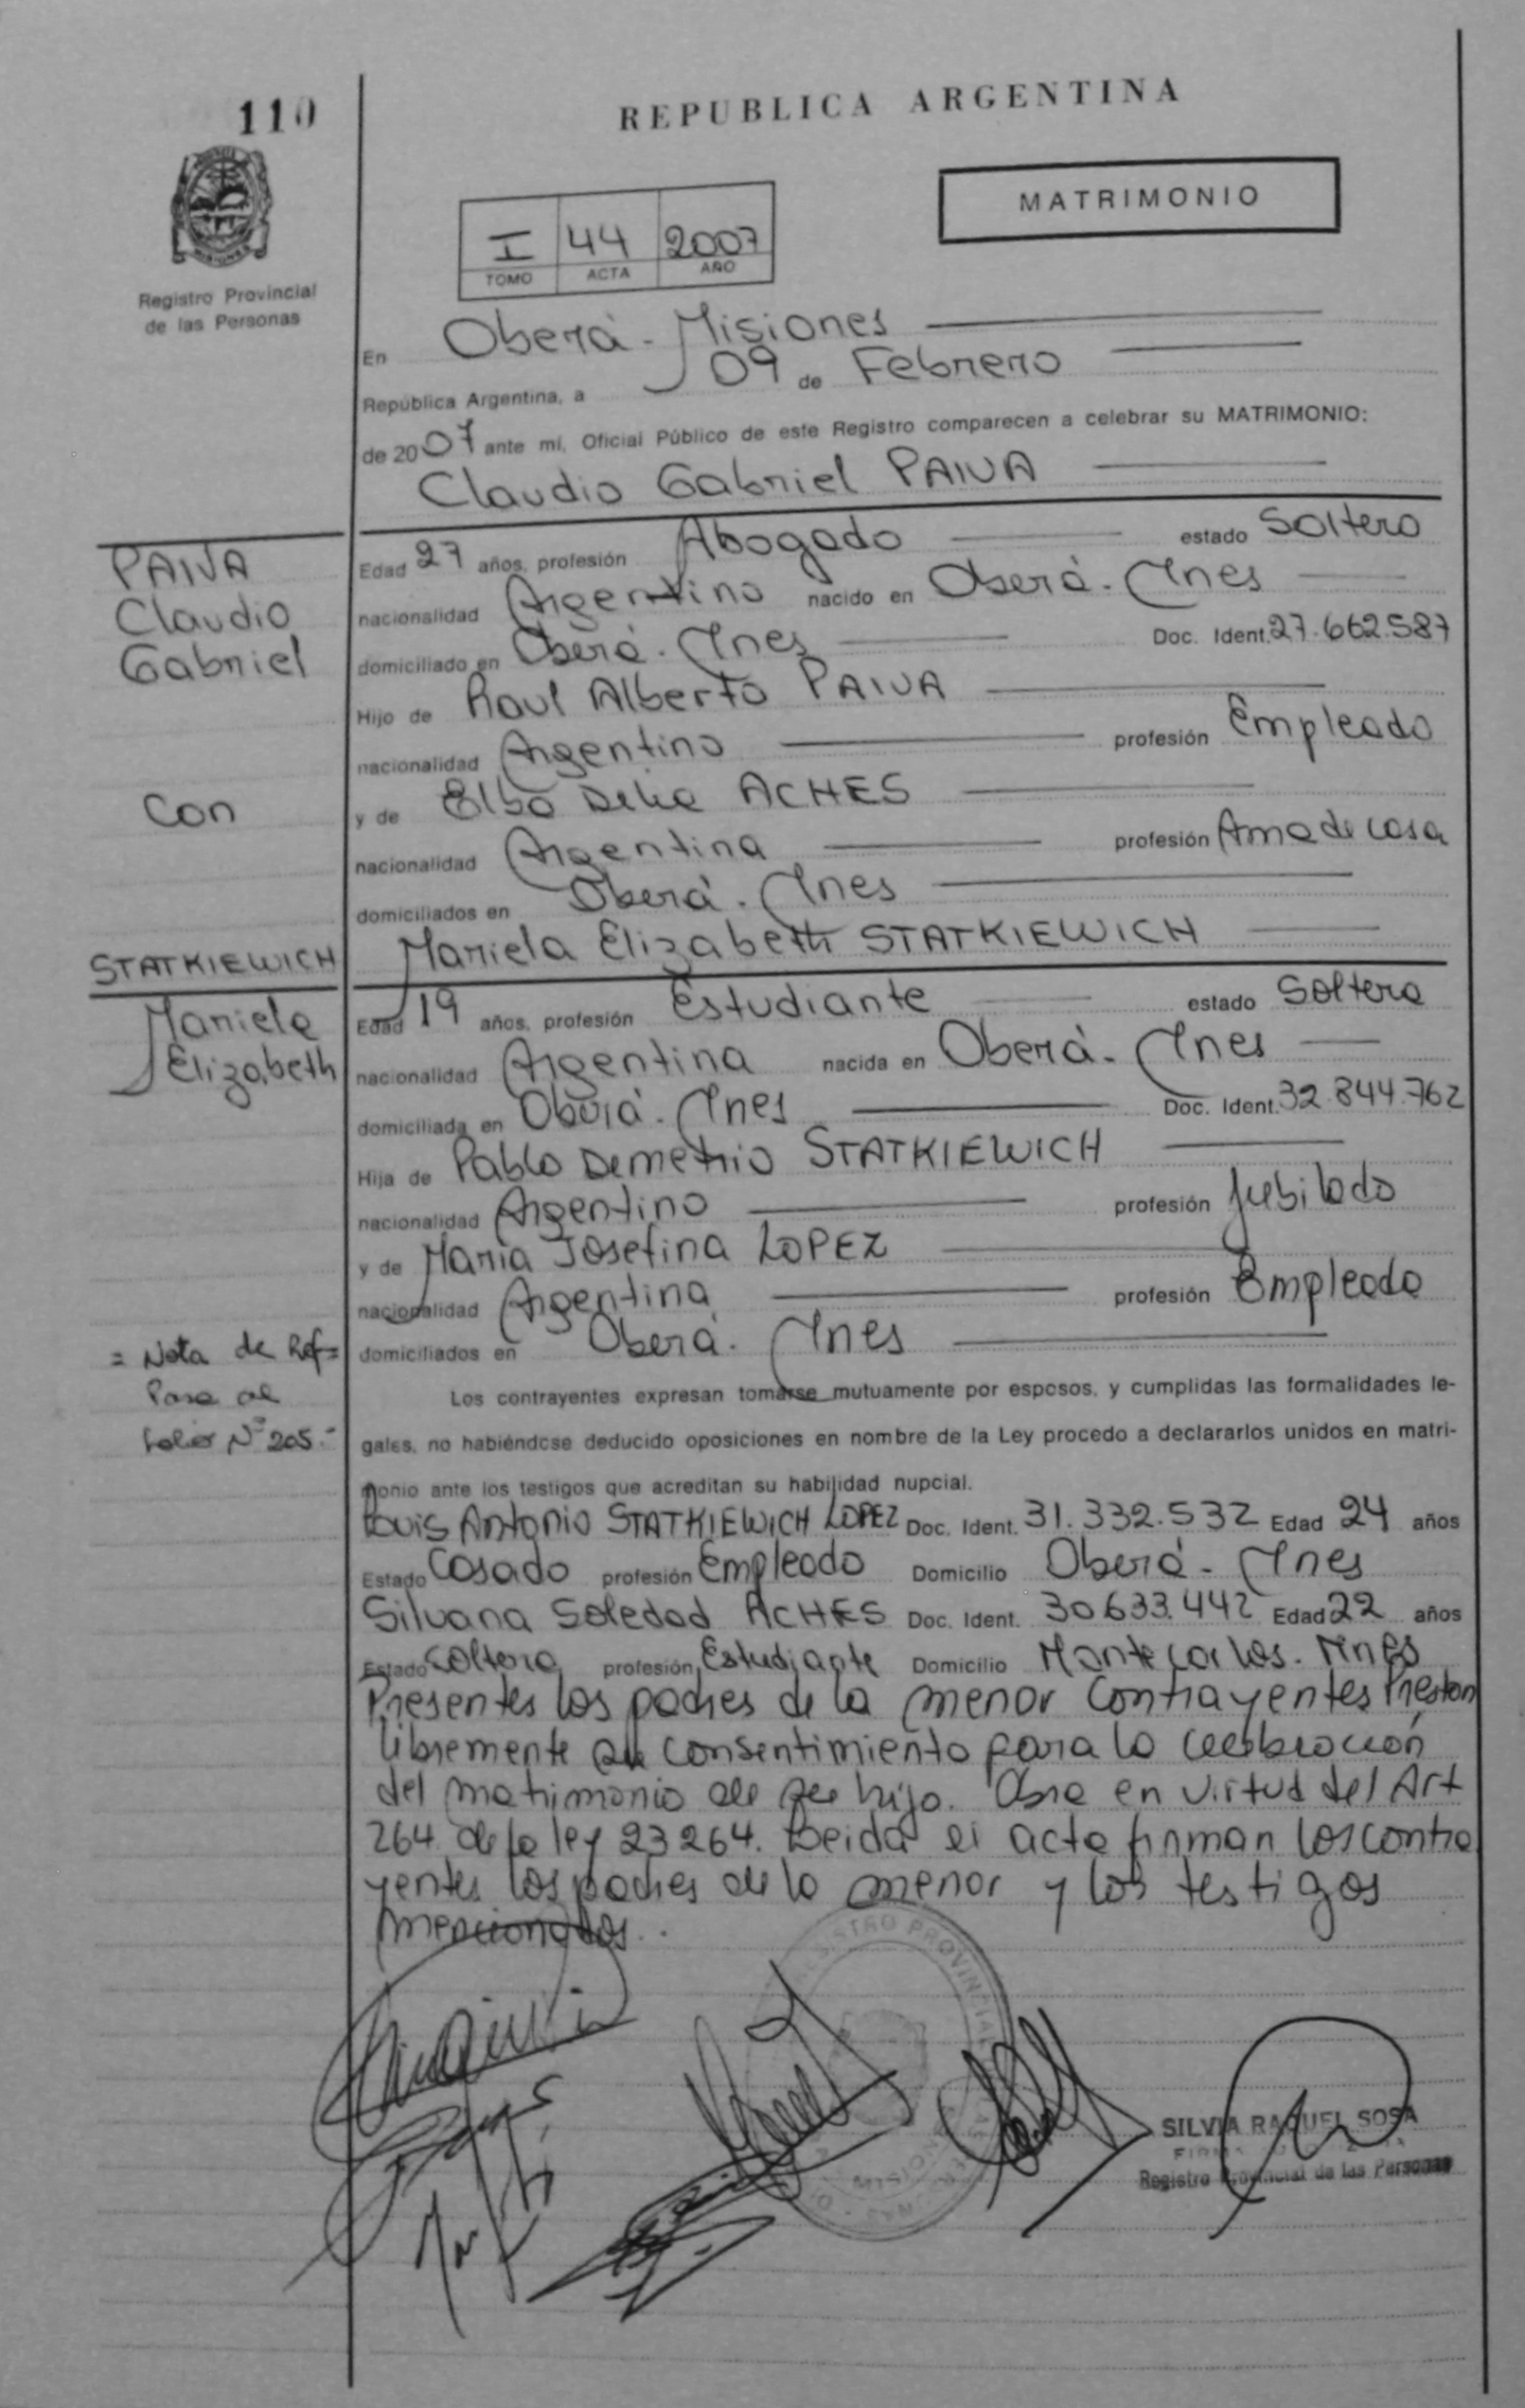 110
REPUBLICA ARGENTINA
MATRIMONIO
I 44 2007
TOMO ACTA AÑO
Registro Provincial
de las Personas
En Oberá - Misiones
República Argentina, a 09 de Febrero
de 2007 ante mi, Oficial Público de este Registro comparecen a celebrar su MATRIMONIO:
Claudio Gabriel PAIVA
PAIVA
Claudio
Gabriel
Edad 27 años, profesión Abogado estado Soltero
nacionalidad Argentino nacido en Oberá - Mnes
domiciliado en Oberá - Mnes Doc. Ident. 27.662.587
Hijo de Raul Alberto PAIVA
nacionalidad Argentino profesión Empleado
Con
y de Elba Delia ACHES
nacionalidad Argentina profesión Ama de casa
domiciliados en Oberá - Mnes
STATKIEWICH
Mariela
Elizabeth
Mariela Elizabeth STATKIEWICH
Edad 19 años, profesión Estudiante estado Soltera
nacionalidad Argentina nacida en Oberá - Mnes
domiciliada en Oberá - Mnes Doc. Ident. 32.844.762
Hija de Pablo Demetrio STATKIEWICH
nacionalidad Argentino profesión Jubilado
y de Maria Josefina LOPEZ
nacionalidad Argentina profesión Empleada
domiciliados en Oberá - Mnes
= Nota de Ref =
Pasa al
folio Nº 205.-
Los contrayentes expresan tomarse mutuamente por esposos, y cumplidas las formalidades le-
gales, no habiéndose deducido oposiciones en nombre de la Ley procedo a declararlos unidos en matri-
monio ante los testigos que acreditan su habilidad nupcial.
Louis Antonio STATKIEWICH LOPEZ Doc. Ident. 31.332.532 Edad 24 años
Estado Casado profesión Empleado Domicilio Oberá - Mnes
Silvana Soledad ACHES Doc. Ident. 30.633.442 Edad 22 años
Estado Soltera profesión Estudiante Domicilio Montecarlos. Mnes
Presentes los padres de la menor contrayentes Prestan
libremente su consentimiento para la celebración
del matrimonio de su hija. Obra en virtud del Art
264 de la ley 23264. Leida el acta firman los contra
yentes los padres de la menor y los testigos
mencionados.
REGISTRO PROVINCIAL
MISIONES
SILVIA RAQUEL SOSA
Registro Provincial de las Personas